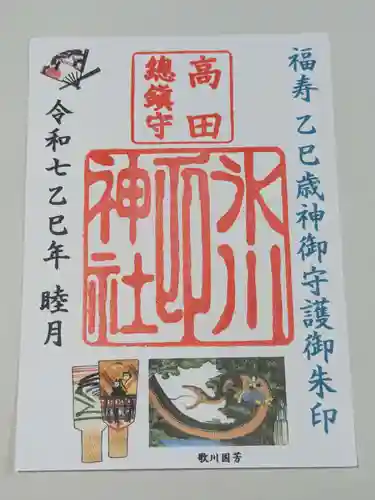 福寿 乙巳歳神御守護御朱印
高田
總鎮守
氷川
神社
令和七乙巳年 睦月
歌川国芳